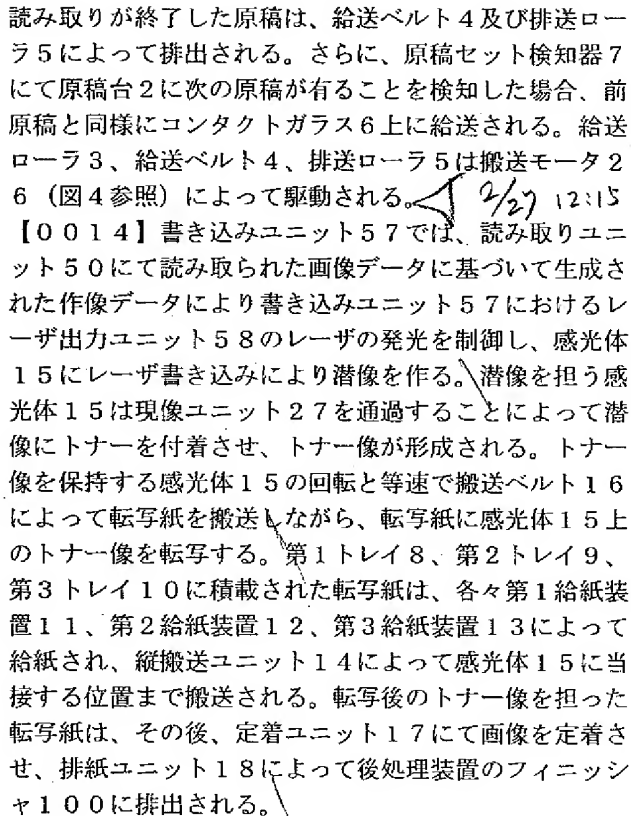 読み取りが終了した原稿は、給送ベルト4及び排送ロー
ラ5によって排出される。さらに、原稿セット検知器7
にて原稿台2に次の原稿が有ることを検知した場合、前
原稿と同様にコンタクトガラス6上に給送される。給送
ローラ3、給送ベルト4、排送ローラ5は搬送モータ2
6(図4参照)によって駆動される。 2/27 12:15
【0014】書き込みユニット57では、読み取りユニ
ット50にて読み取られた画像データに基づいて生成さ
れた作像データにより書き込みユニット57におけるレ
ーザ出力ユニット58のレーザの発光を制御し、感光体
15にレーザ書き込みにより潜像を作る。潜像を担う感
光体15は現像ユニット27を通過することによって潜
像にトナーを付着させ、トナー像が形成される。トナー
像を保持する感光体15の回転と等速で搬送ベルト16
によって転写紙を搬送しながら、転写紙に感光体15上
のトナー像を転写する。第1トレイ8、第2トレイ9、
第3トレイ10に積載された転写紙は、各々第1給紙装
置11、第2給紙装置12、第3給紙装置13によって
給紙され、縦搬送ユニット14によって感光体15に当
接する位置まで搬送される。転写後のトナー像を担った
転写紙は、その後、定着ユニット17にて画像を定着さ
せ、排紙ユニット18によって後処理装置のフィニッシ
ャ100に排出される。